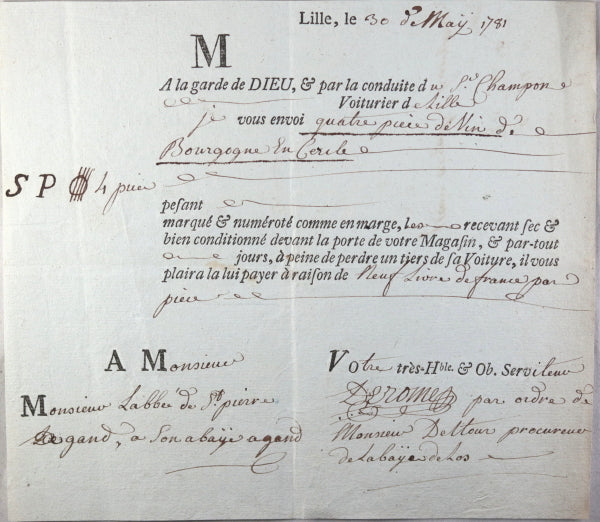 Lille, le 30 de Maÿ 1781
M
A la garde de DIEU, & par la conduite du Sr. Champon
Voiturier d Lille
je vous envoi quatre pièce de Vin de
Bourgogne En Cercle
S P 4 pièce
pesant
marqué & numéroté comme en marge, les recevant sec &
bien conditionné devant la porte de votre Magasin, & par-tout
jours, à peine de perdre un tiers de sa Voiture, il vous
plaira la lui payer à raison de Neuf Livre de france par
pièce
A Monsieur
Monsieur Labbé de St. pierre
gand, a Son abaÿe a gand
Votre très-Hble. & Ob. Serviteur
Derome par ordre de
Monsieur Deltour procureur
de Labaÿe de Los